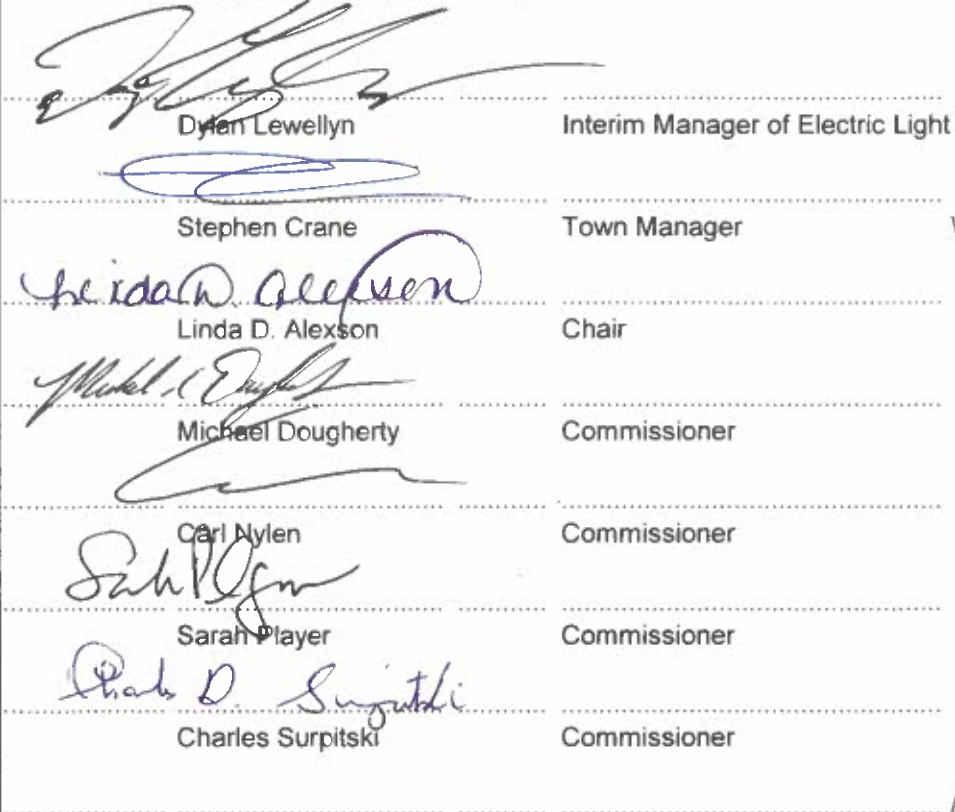 Dylan Lewellyn Interim Manager of Electric Light
Stephen Crane Town Manager
Linda D. Alexson
Linda D. Alexson Chair
Michael Dougherty
Michael Dougherty Commissioner
Carl Nylen Commissioner
Sarah Player
Sarah Player Commissioner
Charles D. Surpitski
Charles Surpitski Commissioner